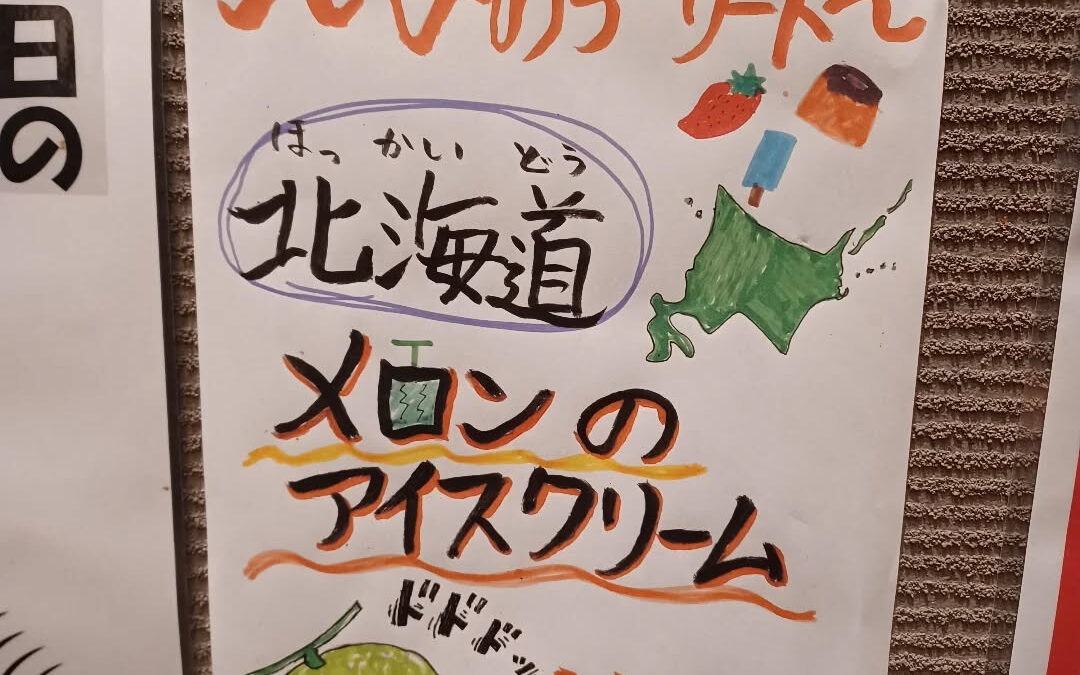 日の
はっかいどう
北海道
メロンの
アイスクリーム
ドドドッ